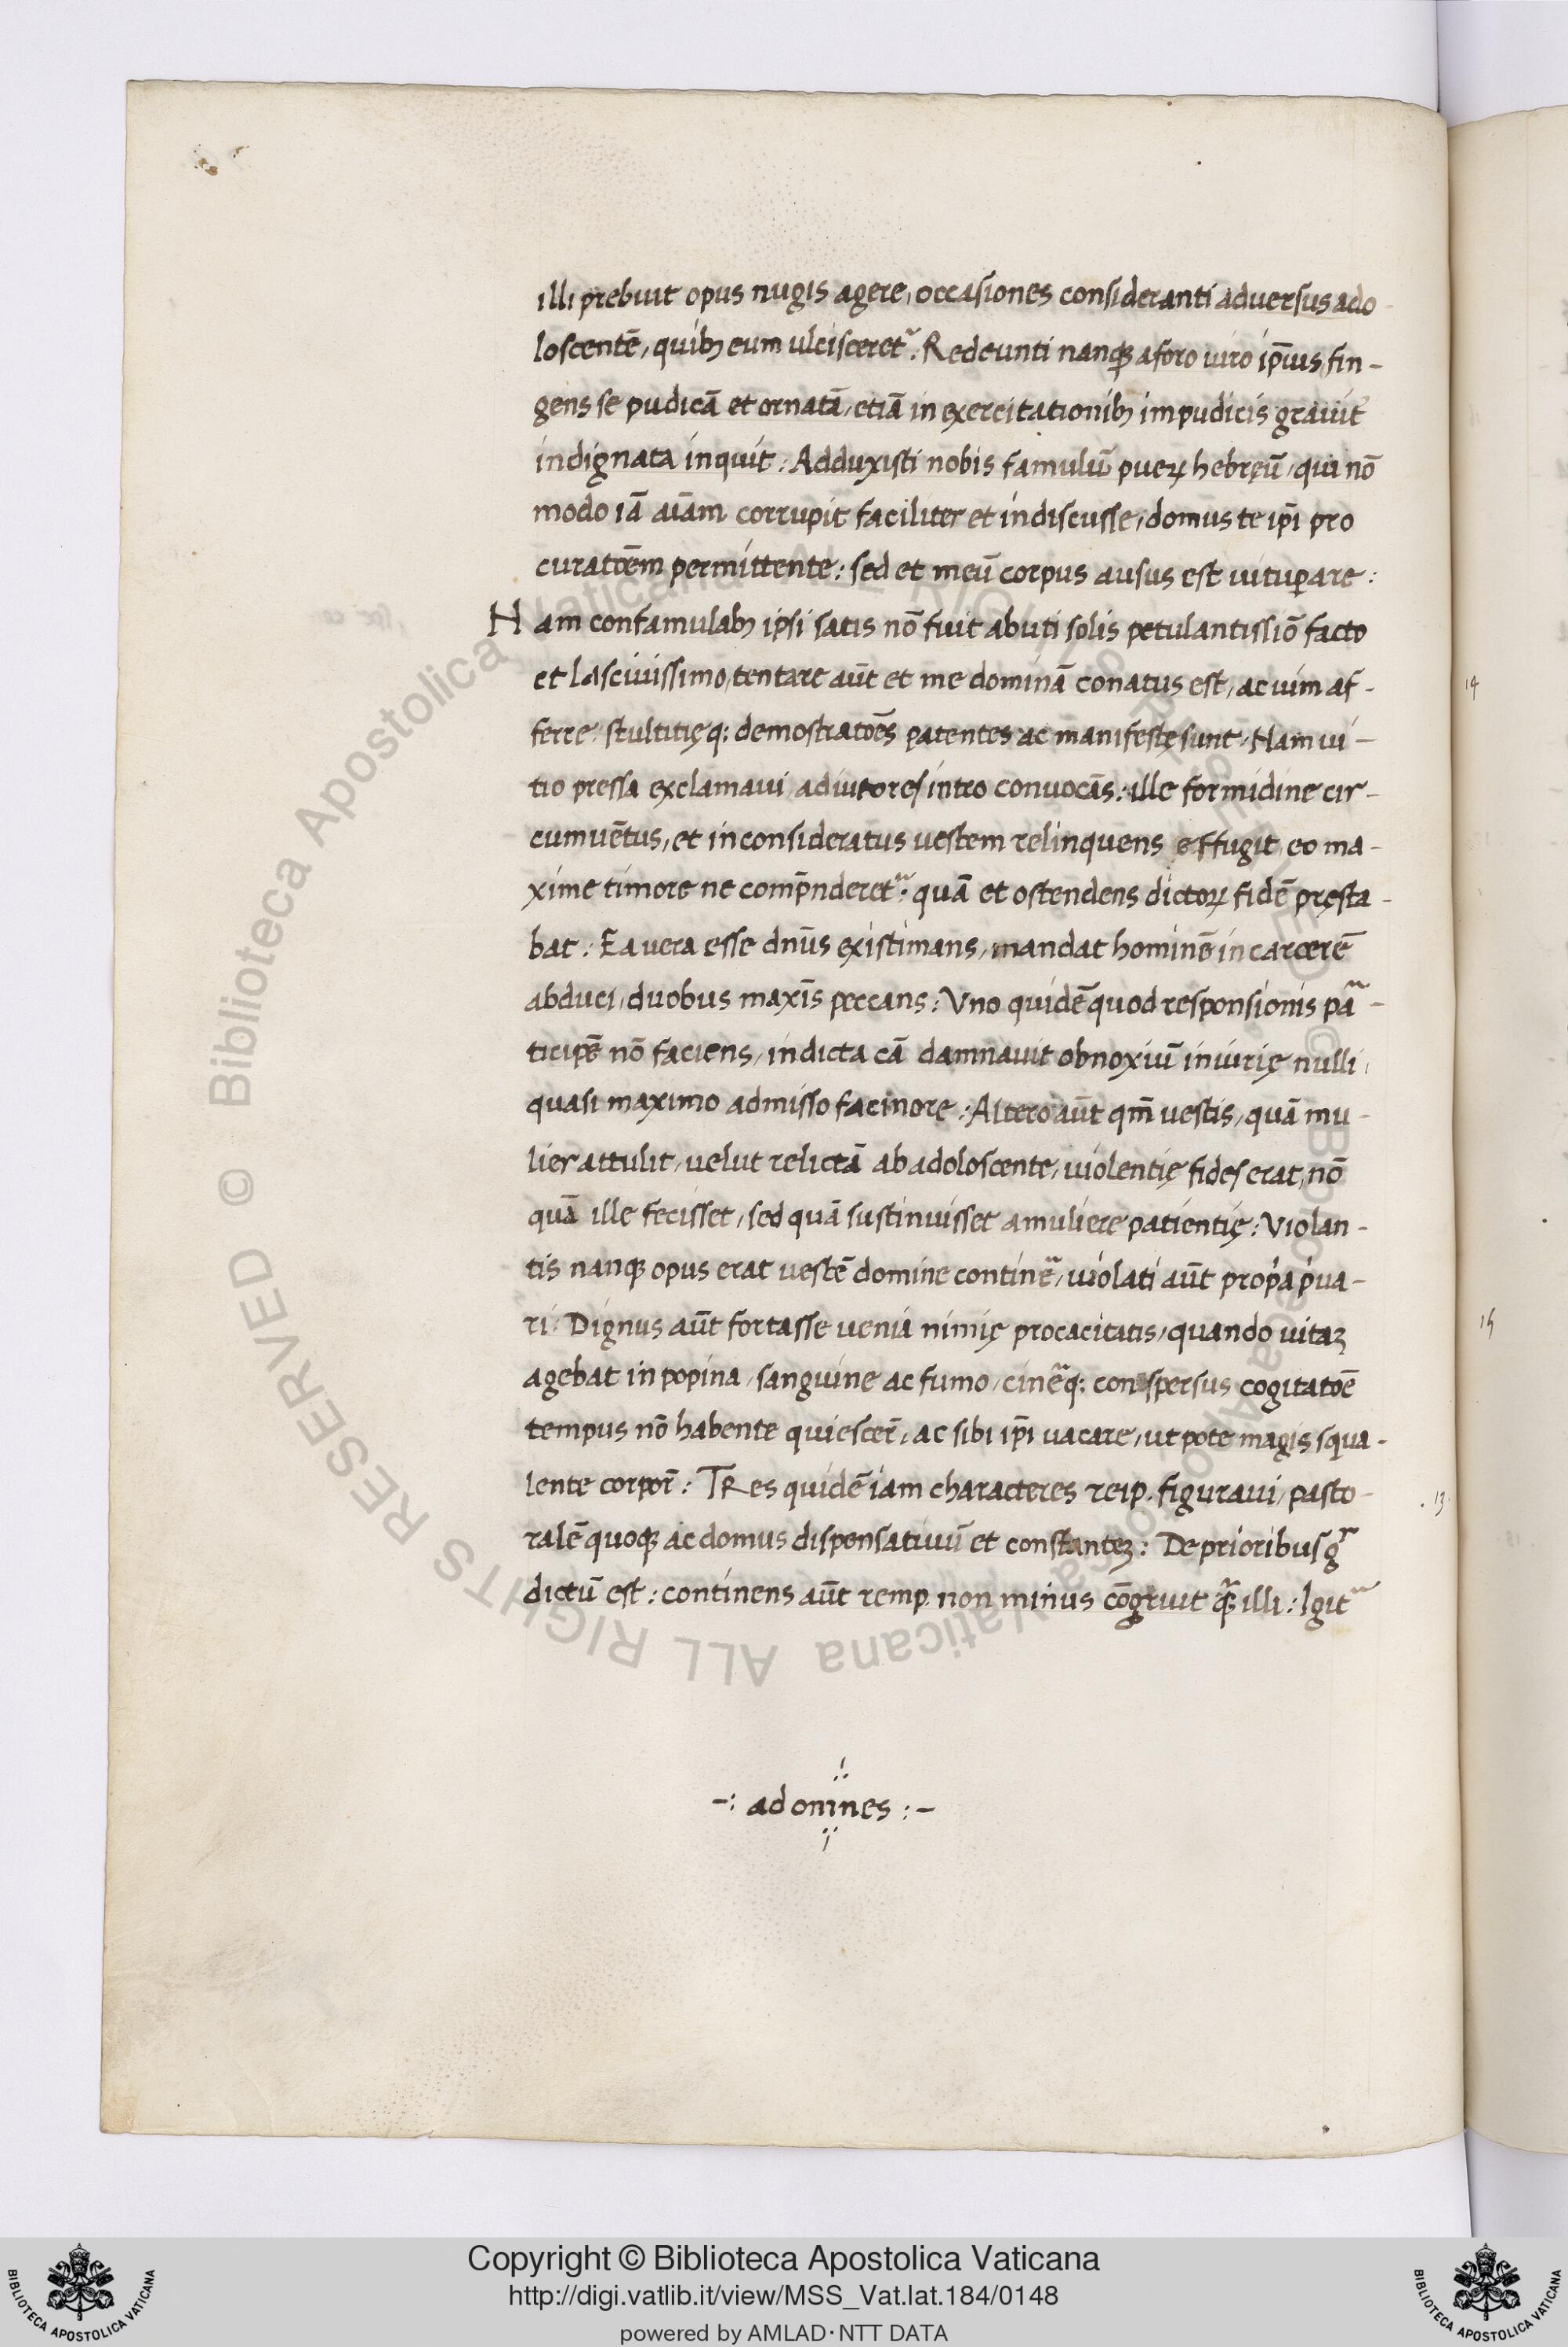 illi prebuit opus nugis agere, occasiones consideranti adversus ado-
loscentē, quibꝫ eum ulcisceret᷑: Redeunti nanqꝫ aforo uiro ip̄ius fin-
gens se pudicā et ornatā, etiā in exercitationibꝫ impudicis grauit᷑
indignata inquit: Adduxisti nobis famulū pueꝝ hebreū, qui nō
modo iā aīam corrupit faciliter et indiscusse, domus te ip̄i pro
curatōem permittente: sed et meū corpus ausus est uitup̄are:
Nam confamulabꝫ ipsi satis nō fuit abuti solis petulantissīo facto
et lascivissimo, tentare aūt et me dominā conatus est, ac uim af-
ferre: stultitięqꝫ demostratōes patentes ac manifestę sunt: Nam ui-
tio pressa exclamaui adiutores intro convocās: ille formidine cir-
cumuētus, et inconsideratus uestem relinquens effugit, eo ma-
xime timore ne comp̄nderet᷑: quā et ostendens dictoꝝ fidē pręsta-
bat: Ea uera esse dn̄us existimans, mandat hominē in carcerē
abduci, duobus maxīs peccans: Vno quidē quod responsionis pa᷑-
ticipē nō faciens, indicta cā damnauit obnoxiū iniurię nulli,
quasi maximo admisso facinore: Altero aūt qm̄ uestis, quā mu-
lier attulit, uelut relictā ab adoloscente, uiolentię fides erat, nō
quā ille fecisset, sed quā sustinuisset amuliere patientię: Violan-
tis nanqꝫ opus erat uestē domine contine᷑, uiolati aūt prop̍a p̍ua-
ri: Dignus aūt fortasse uenia nimię procacitatis, quando uitaꝫ
agebat in popina, sanguine ac fumo, cine᷑qꝫ conspersus cogitatōe
tempus nō habente quiescer̄, ac sibi ip̄i uacare, ut pote magis squa-
lente corpor̄: TRes quidē iam characteres reip. figuraui, pasto-
ralē quoqꝫ ac domus dispensatiuū et constanteꝫ: De prioribus g᷑
dictū est: continens aūt remp. non minus cōgruit qꝫ᷑ illi: Igit᷑
-: ad omines :-
13
14
15
Copyright © Biblioteca Apostolica Vaticana
http://digi.vatlib.it/view/MSS_Vat.lat.184/0148
powered by AMLAD·NTT DATA
BIBLIOTECA APOSTOLICA VATICANA
BIBLIOTECA APOSTOLICA VATICANA
© Biblioteca Apostolica Vaticana ALL RIGHTS RESERVED